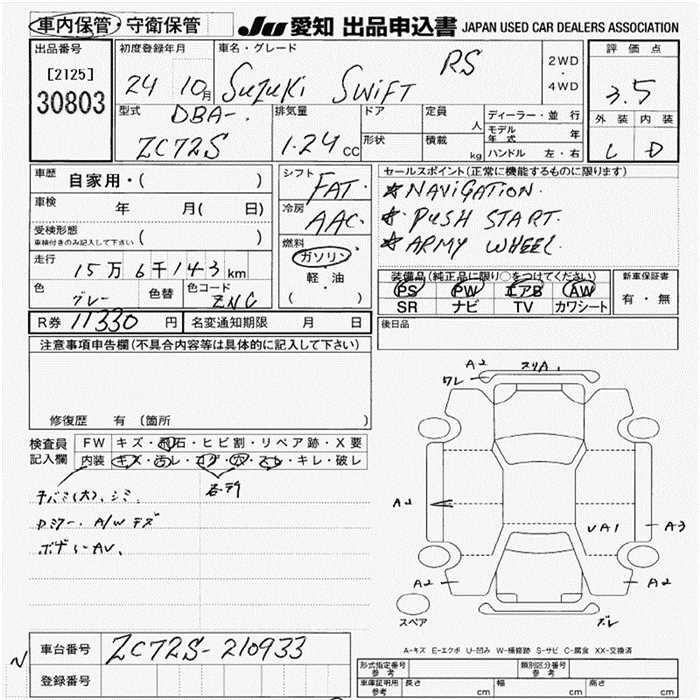 車内保管・守衛保管
JU 愛知 出品申込書 JAPAN USED CAR DEALERS ASSOCIATION
出品番号
[2125]
30803
初度登録年月
24 10月
車名・グレード
SUZUKI SWIFT RS
2WD
・
4WD
評価点
3.5
外装 内装
C D
型式
DBA-
ZC72S
排気量
1.24 CC
ドア
形状
定員
人
積載
kg
ディーラー・並行
モデル年式 年
ハンドル 左・右
車歴
自家用・( )
車検 年 月( 日)
受検形態
車検付きのみ記入して下さい ( )
走行
15万6千143km
色
グレー
色替
色コード
ZNC
シフト
FAT
冷房
AAC
燃料
ガソリン
・
軽・油
( )
セールスポイント(正常に機能するものに限ります)
★NAVIGATION.
★PUSH START.
★ARMY WHEEL
装備品(純正品に限り○をつけてください)
PS PW エアB AW
SR ナビ TV カワシート
新車保証書
有・無
R券 11330 円
名変通知期限 月 日
後日品
注意事項申告欄(不具合内容等は具体的に記入して下さい)
修復歴 有 (箇所 )
検査員
記入欄
FW キズ・飛石・ヒビ割・リペア跡・X要
内装 キズ・汚レ・コゲ・穴・スレ・キレ・破レ
A/W キズ
A2
ワレ
A2
VA1
A3
A2
A2
スペア
A-キズ E-エクボ U-凹み W-補修跡 S-サビ C-腐食 XX-交換済
車台番号 ZC72S-210933
登録番号
形式指定番号
参考
類別区分番号
参考
車庫証明用
参考
長さ cm 幅 cm 高さ cm